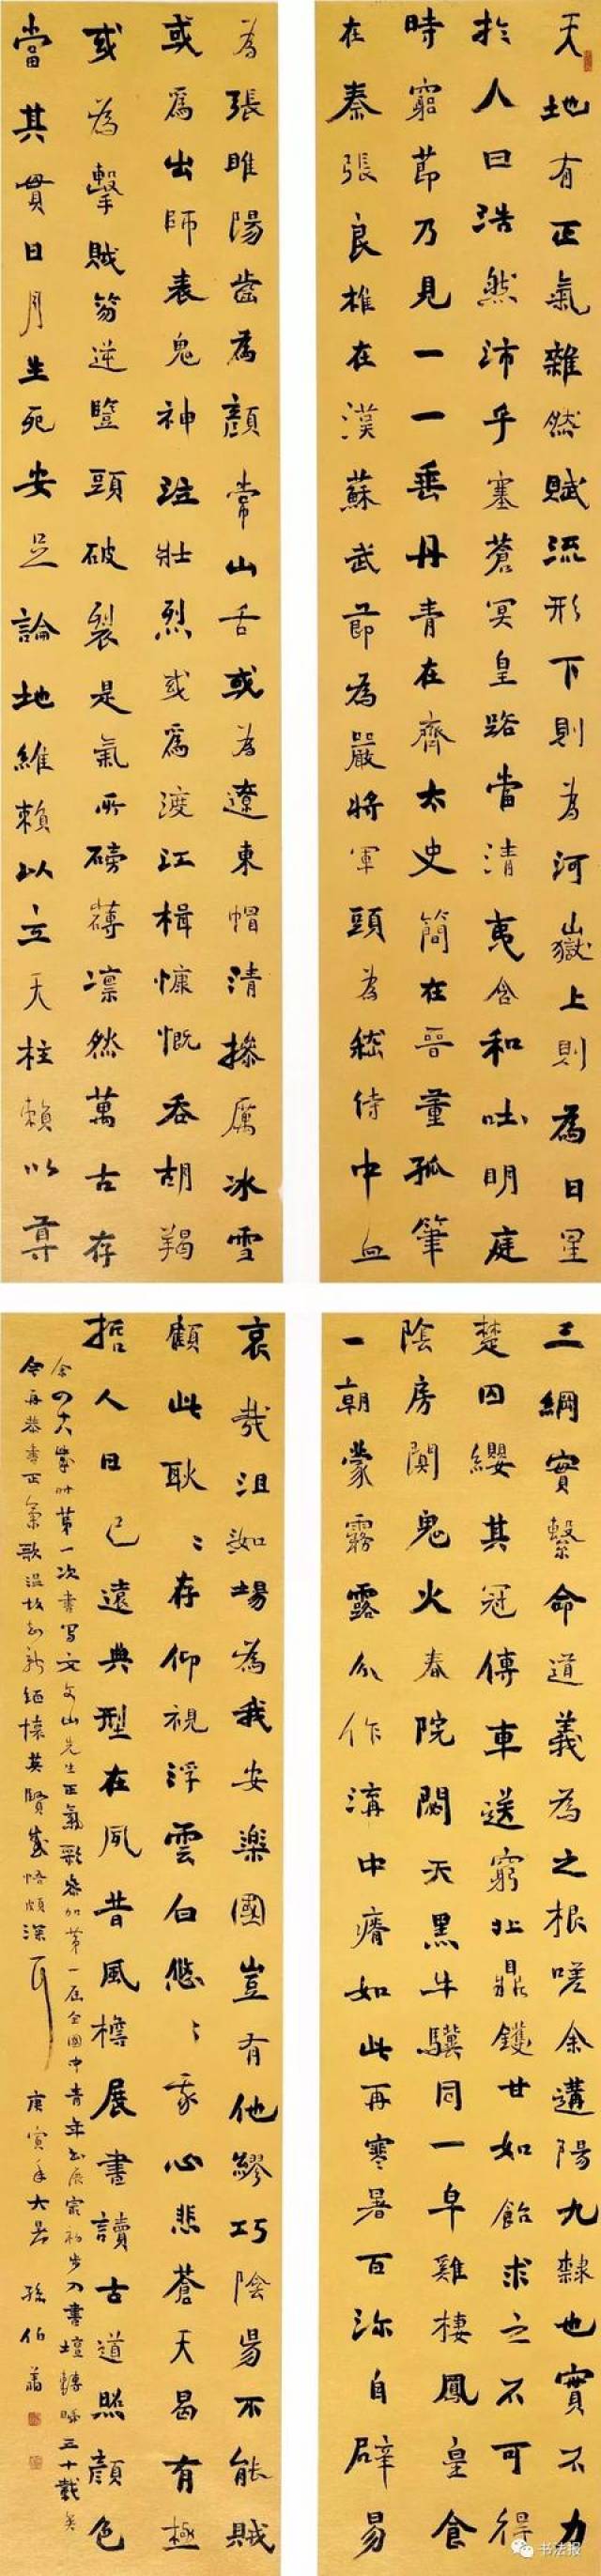 天地有正氣雜然賦流形下則為河嶽上則為日星
於人曰浩然沛乎塞蒼冥皇路當清夷含和吐明庭
時窮節乃見一一垂丹青在齊太史簡在晉董狐筆
在秦張良椎在漢蘇武節為嚴將軍頭為嵇侍中血
為張睢陽齒為顏常山舌或為遼東帽清操厲冰雪
或為出師表鬼神泣壯烈或為渡江楫慷慨吞胡羯
或為擊賊笏逆豎頭破裂是氣所磅礴凛然萬古存
當其貫日月生死安足論地維賴以立天柱賴以尊
三綱實繫命道義為之根嗟余遘陽九隸也實不力
楚囚纓其冠傳車送窮北鼎鑊甘如飴求之不可得
陰房闃鬼火春院閟天黑牛驥同一皁雞棲鳳皇食
一朝蒙霧露分作溝中瘠如此再寒暑百沴自辟易
哀哉沮洳場為我安樂國豈有他繆巧陰陽不能賊
顧此耿〻存仰視浮雲白悠〻我心悲蒼天曷有極
哲人日已遠典型在夙昔風檐展書讀古道照顏色
余四十六歲时第一次書写文文山先生正氣歌參加第一屆全國中青年書展初步入書壇轉眄三十載矣
今再恭書正氣歌溫故知新緬懷英賢感悟頗深 庚寅年大暑 孫伯翔
书法报